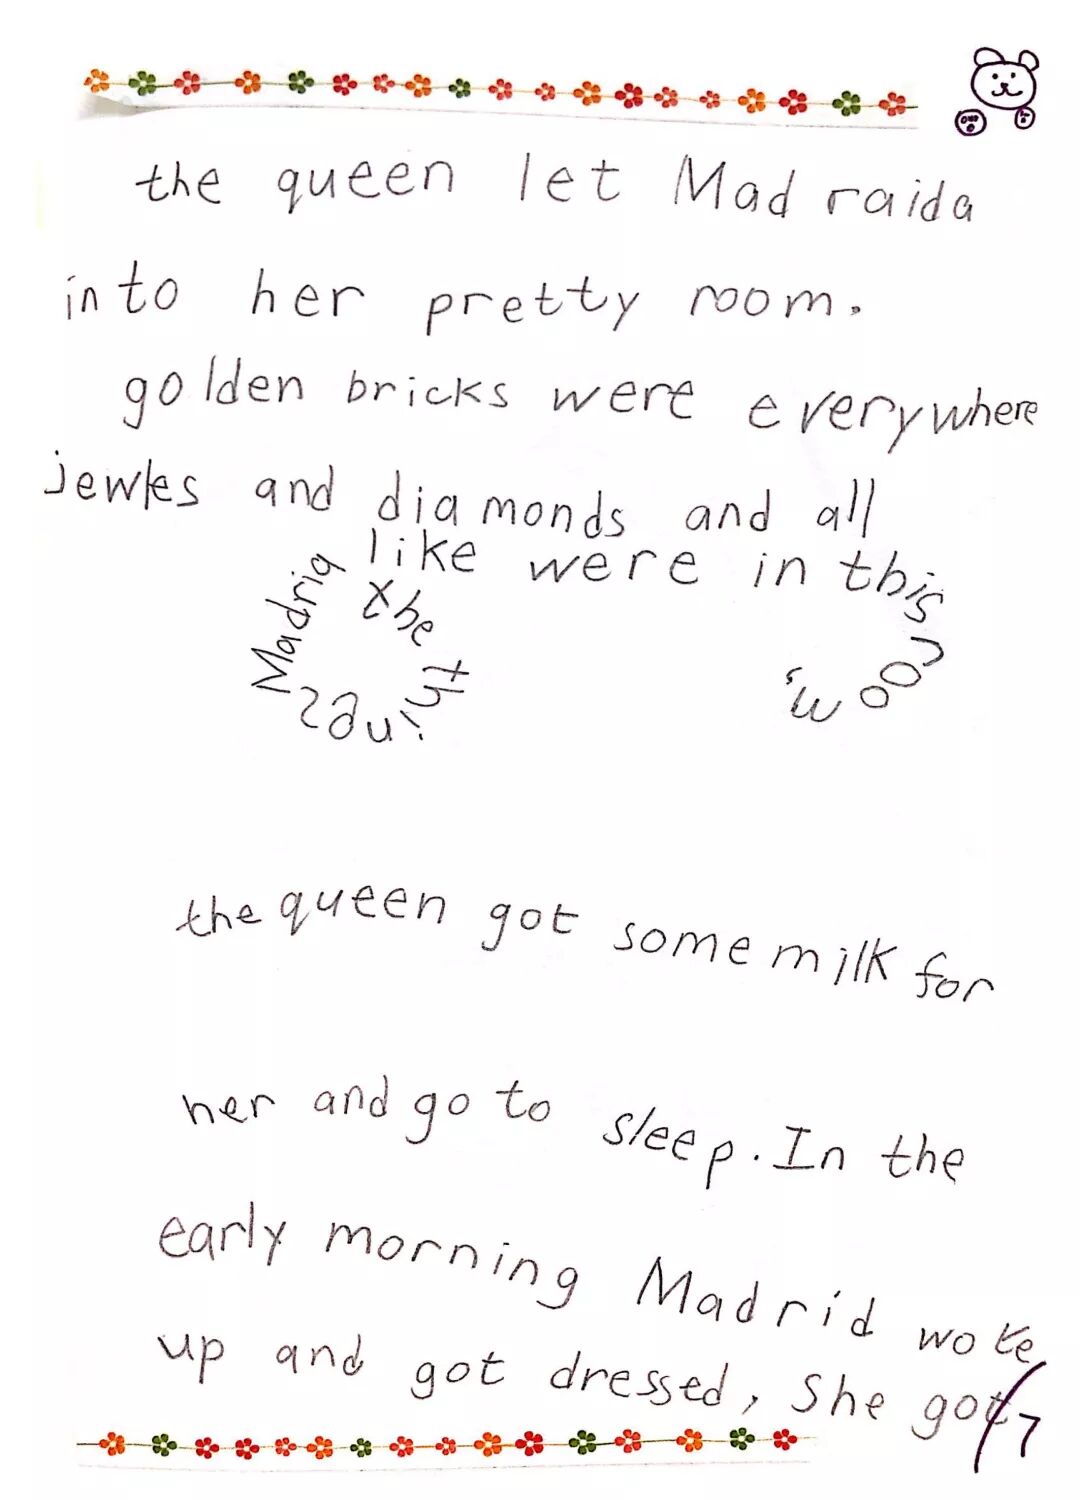 the queen let Madraida
into her pretty room.
golden bricks were everywhere
jewles and diamonds and all
the thines Madria
like were in this
room.
the queen got some milk for
her and go to sleep. In the
early morning Madrid woke
up and got dressed, She got
7